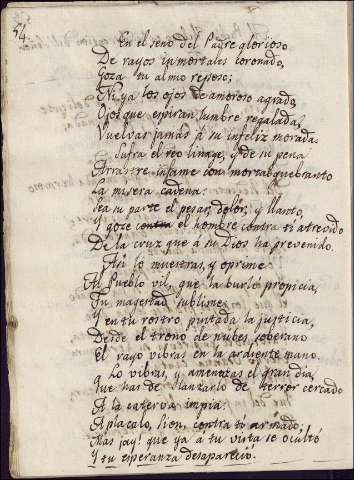 54
En el seno del Padre glorioso
De rayos inmortales coronado,
Goza tu almo reposo;
Ni ya los ojos de amoroso agrado,
Ojos que espiran lumbre regalada,
Vuelvas jamás á su infeliz morada.
Sufra el reo linage, y de su pena
Arrastre infame con mortal quebranto
La misera cadena:
Sea su parte el pesar, dolor, y llanto,
Y goze el hombre contra ti atrevido
De la cruz que a su Dios ha prevenido.
Asi lo muestras, y oprime
Al Pueblo vil, que la burló propicia,
Tu magestad sublime:
Y en tu rostro pintada la justicia,
Desde el trono de nubes soberano
El rayo vibras en la ardiente mano.
Lo vibras, y amenazas el gran dia,
Que has de lanzarlo de terror cercado
A la caterva impia.
Aplacalo, Sion, contra ti armado;
Mas ¡ay! que ya a tu vista se ocultó
Y tu esperanza desapareció.